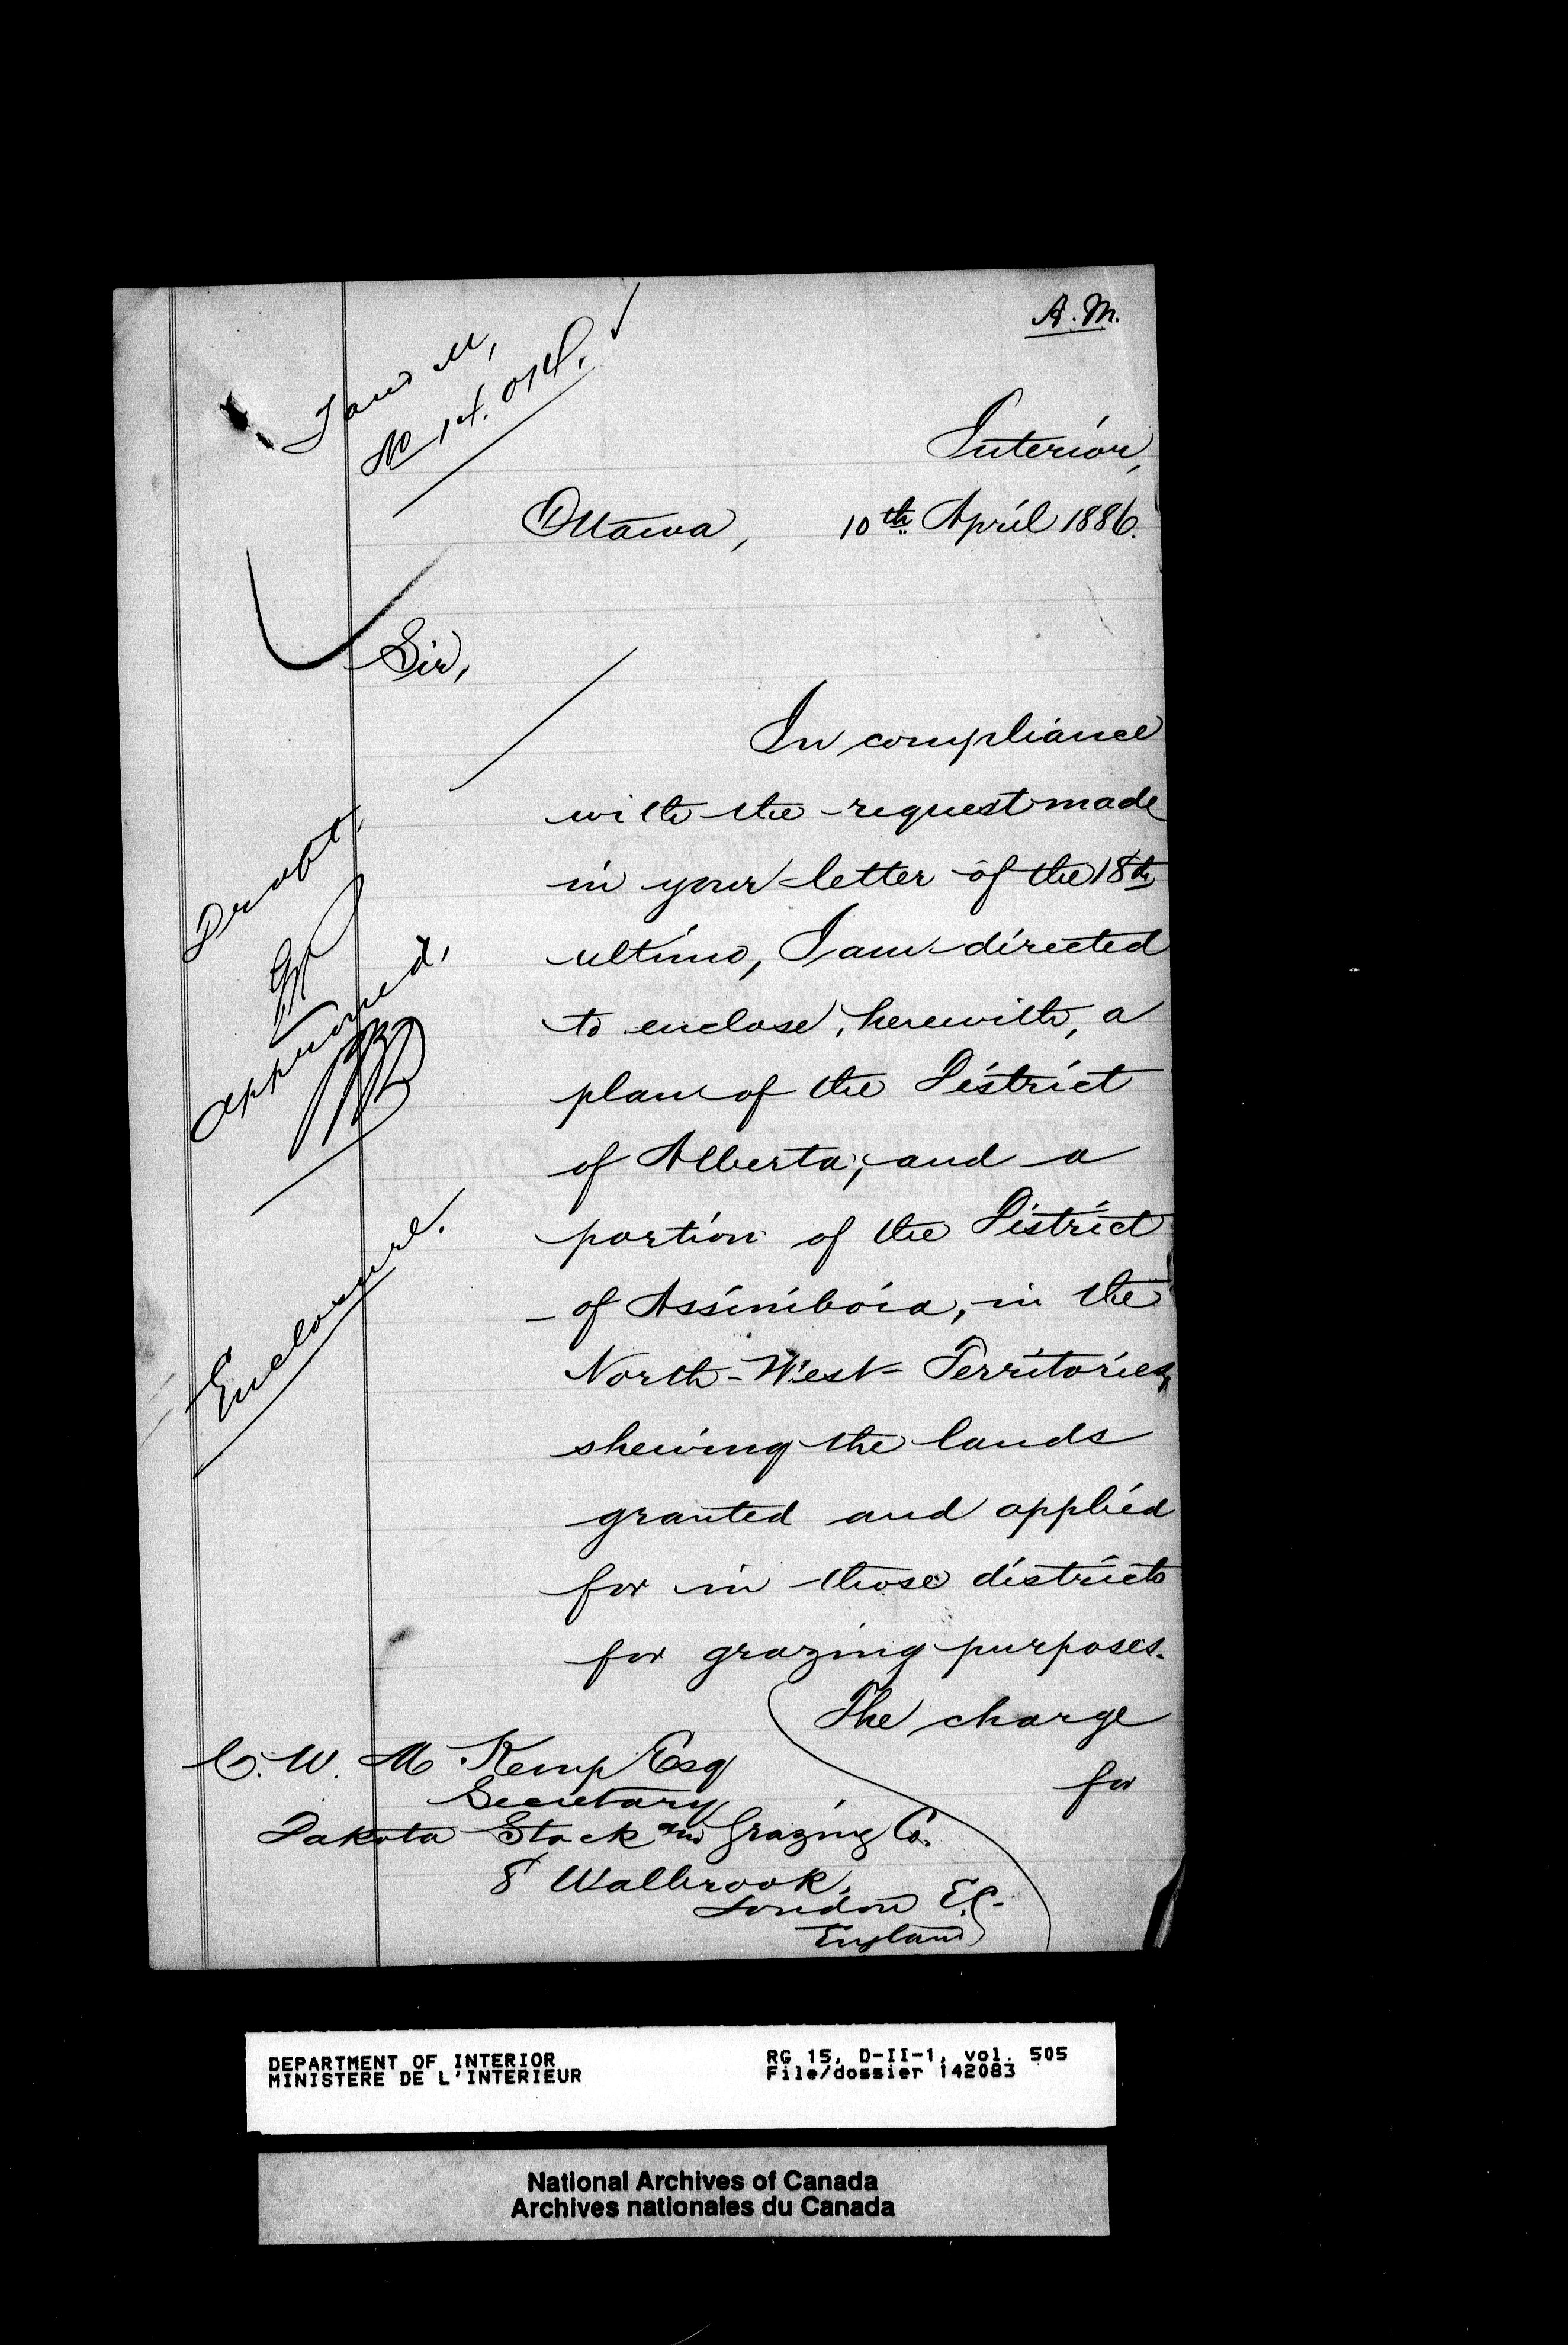 A. M.
Interior,
Ottawa, 10th April 1886.
Sir,
In compliance
with the request made
in your letter of the 18th
ultimo, I am directed
to enclose, herewith, a
plan of the District
of Alberta, and a
portion of the District
of Assiniboia, in the
North-West Territories,
shewing the lands
granted and applied
for in those districts
for grazing purposes.
The charge
for
Draft,
approved,
Enclosure.
C. W. M. Kemp Esq
Secretary
Dakota Stock and Grazing Co.
8 Walbrook,
London E.C.
England
DEPARTMENT OF INTERIOR
MINISTERE DE L'INTERIEUR
RG 15, D-II-1, vol. 505
File/dossier 142083
National Archives of Canada
Archives nationales du Canada